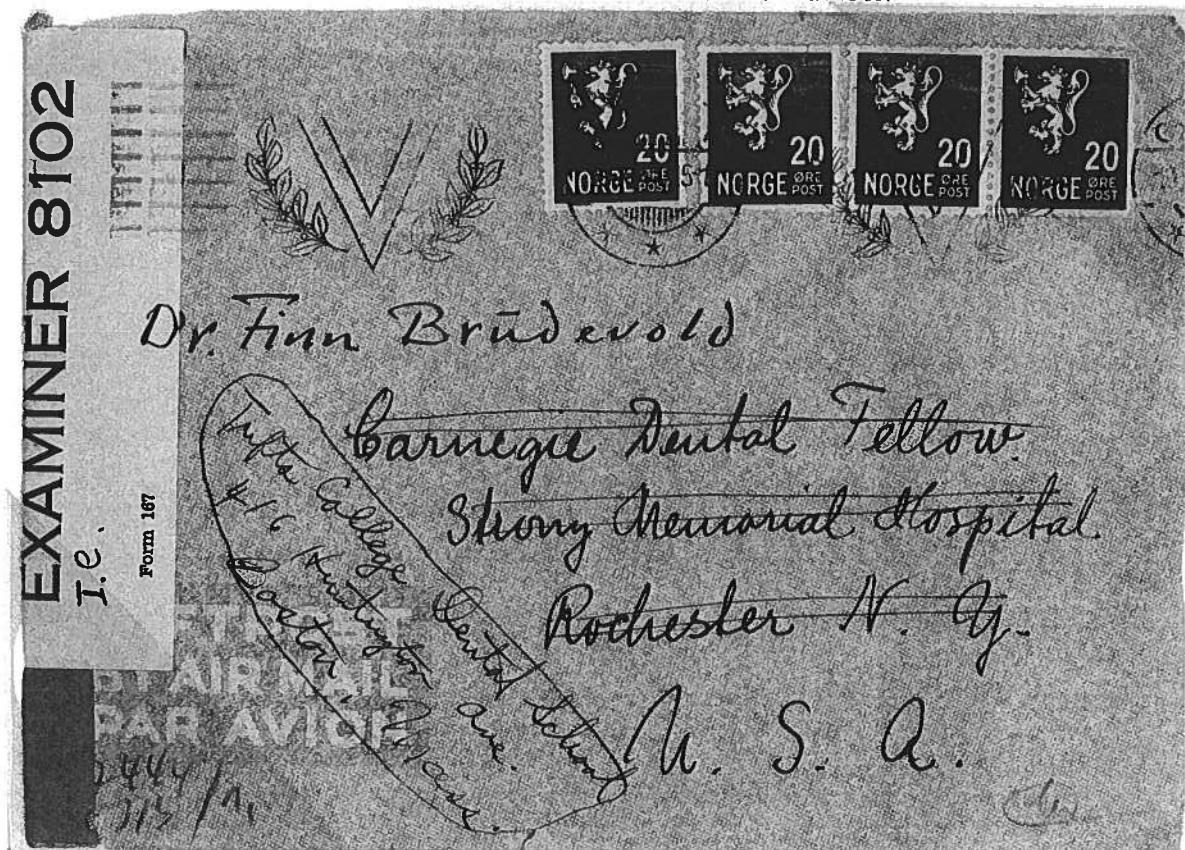 EXAMINER 8102
I.e.
Form 167
20
NORGE ØRE POST
20
NORGE ØRE POST
20
NORGE ØRE POST
20
NORGE ØRE POST
V
Dr. Finn Brudevold
Carnegie Dental Fellow.
Strong Memorial Hospital
Rochester N. Y.
U. S. A.
Tufts College Dental School
416 Huntington ave.
Boston, Mass.
BY AIR MAIL
PAR AVION